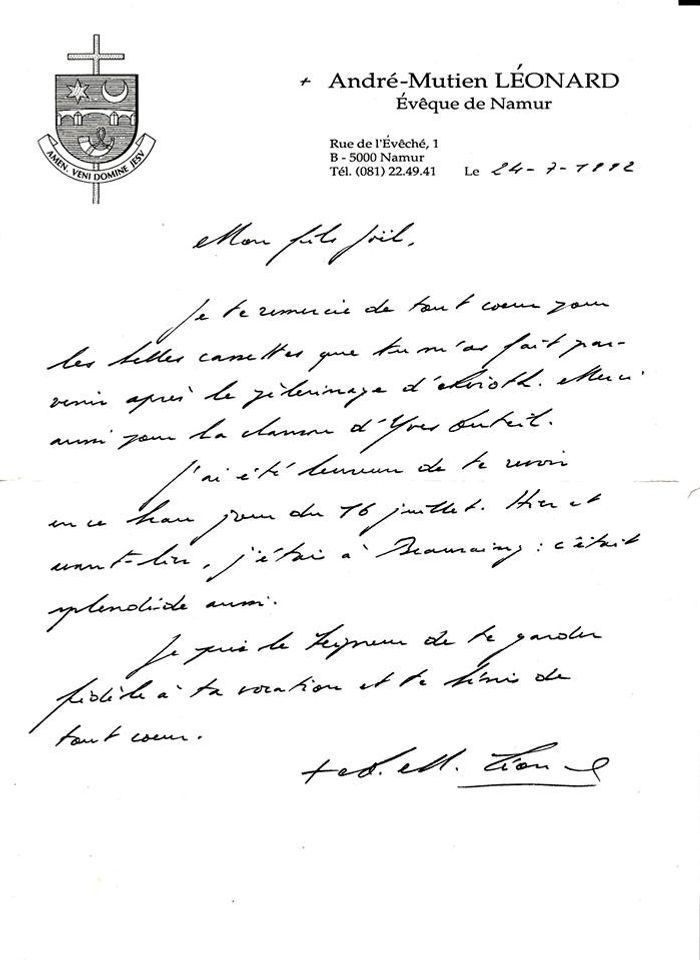 + André-Mutien LÉONARD
Évêque de Namur
Rue de l'Évêché, 1
B - 5000 Namur
Tél. (081) 22.49.41 Le 24-7-1992
AMEN. VENI DOMINE JESV
Mon fils Joël,
Je te remercie de tout coeur pour
les belles cassettes que tu m'as fait par-
venir après le pèlerinage d'Avioth. Merci
aussi pour la chanson d'Yves Duteil.
J'ai été heureux de te revoir
en ce beau jour du 16 juillet. Hier et
avant-hier, j'étais à Beauraing : c'était
splendide aussi.
Je prie le Seigneur de te garder
fidèle à ta vocation et te bénis de
tout coeur.
+ A. M. Léonard